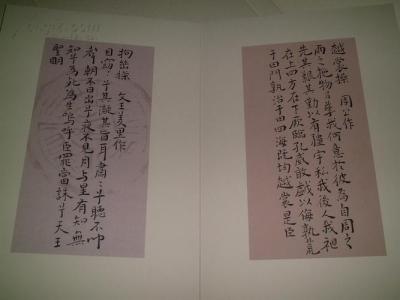 越裳操 周公作
雨之施物以孳我何意於彼為自周之
先其艱其勤以有疆宇私我後人我祖
在上四方在下厥臨孔威敢戲以侮孰荒
于門孰治于田四海既均越裳是臣
拘幽操 文王羑里作
目窈〻兮其凝其盲耳肅〻兮聽不聞
聲朝不日出兮夜不見月与星有知無
知兮為死為生嗚呼臣罪當誅兮天王
聖明